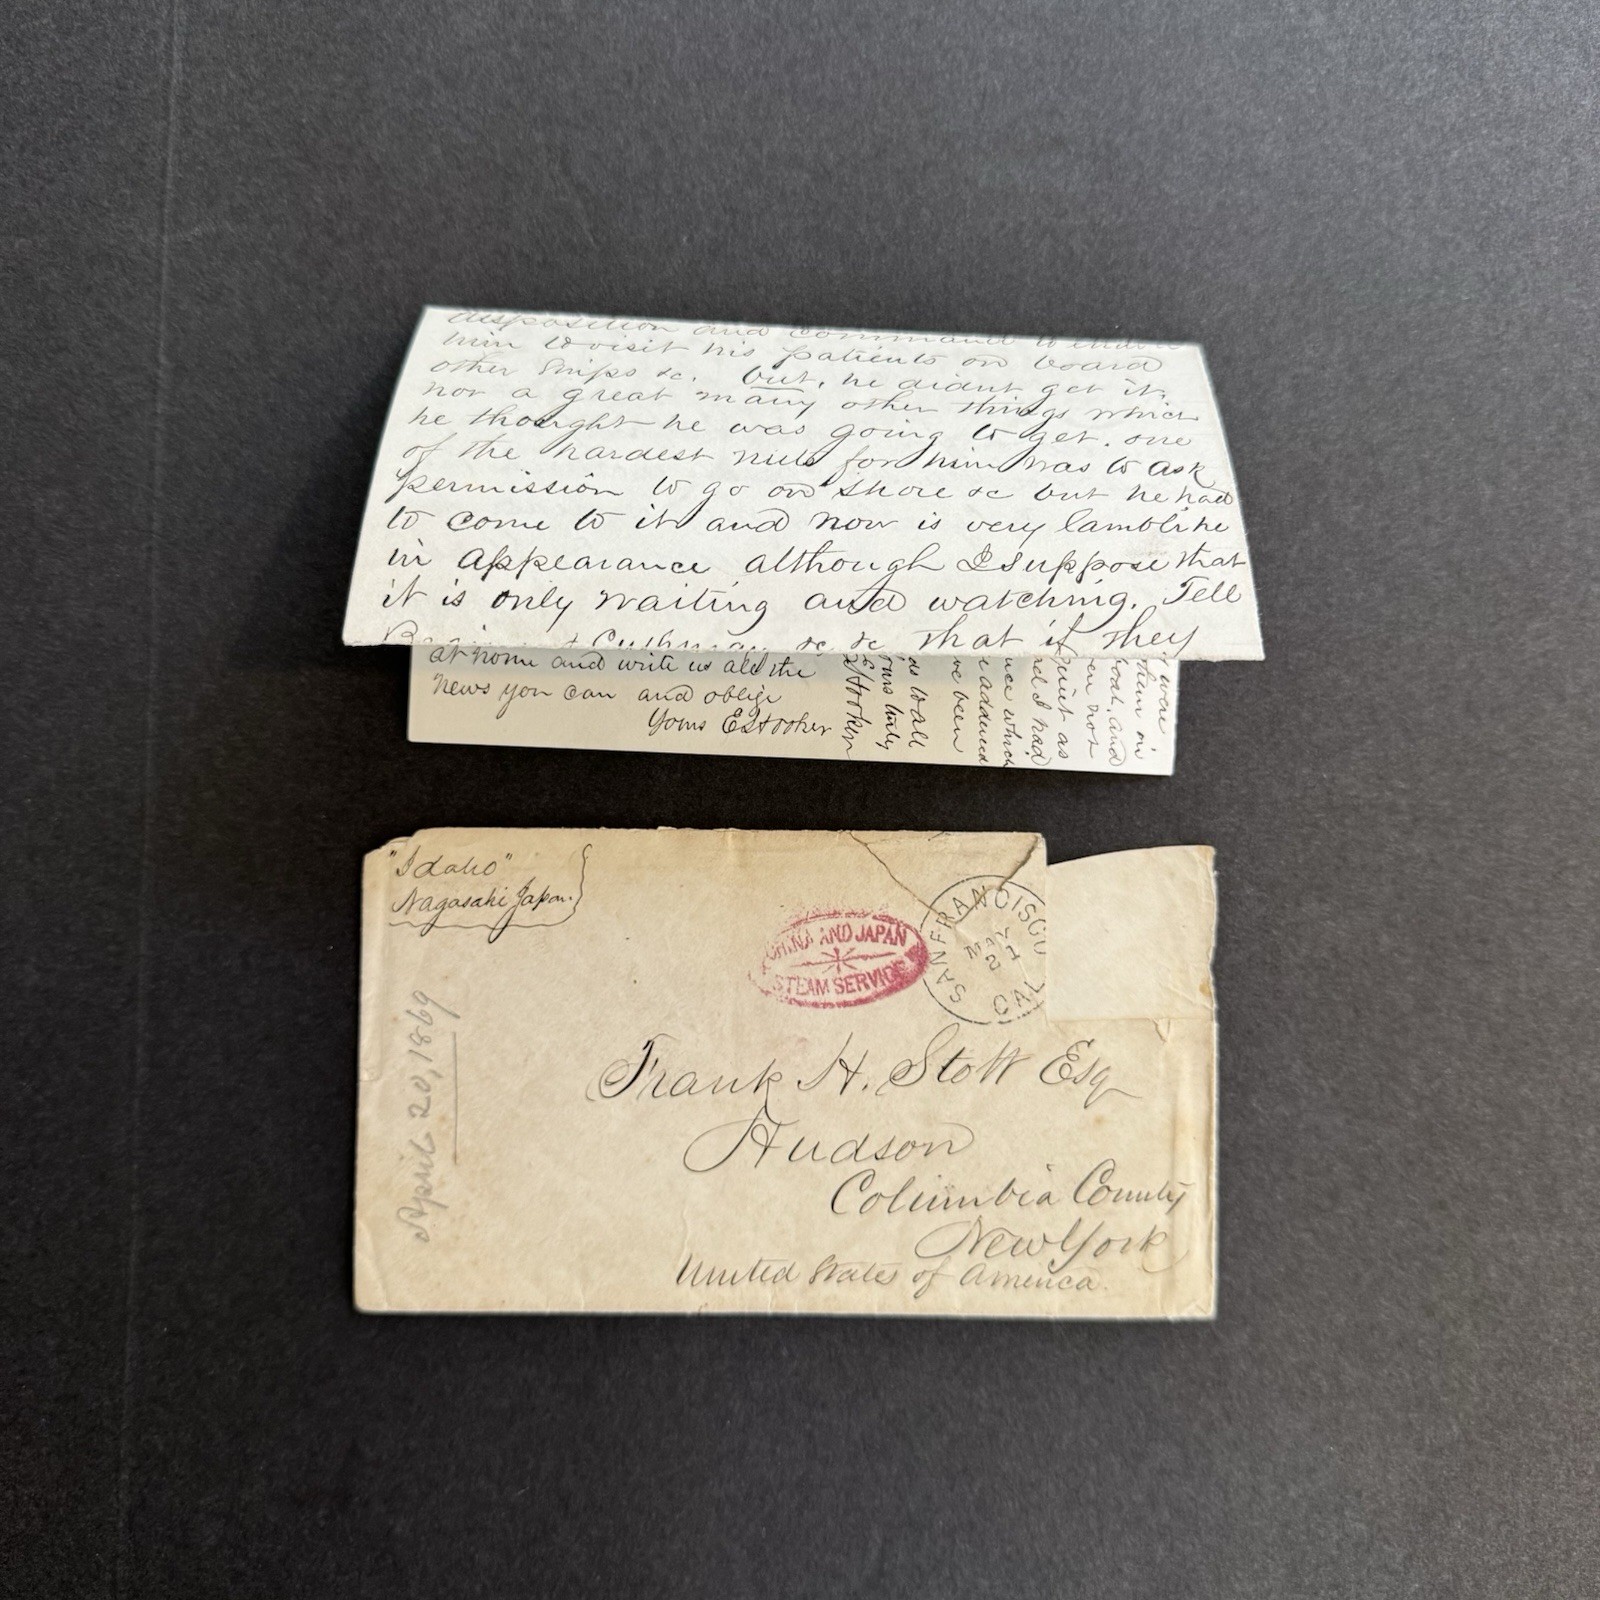 disposition and command to
him to visit his patients on board
other ships &c. but, he didnt get it,
nor a great many other things which
he thought he was going to get. one
of the hardest nuts for him was to ask
permission to go on shore &c but he had
to come to it and now is very lamblike
in appearance although I suppose that
it is only waiting and watching. Tell
& Cushman &c &c that if they
at home and write us all the
news you can and oblige
Yours E S Hooker
were
them in
boat, and
not
quiet as
I had
which
adduced
ve been
as Wall
Yours truly
Hooker
"Idaho"
Nagasaki Japan.
CHINA AND JAPAN
STEAM SERVICE
SAN FRANCISCO
MAY
21
CAL
April 20, 1869
Frank H. Stott Esq
Hudson
Columbia County
New York
United States of America.